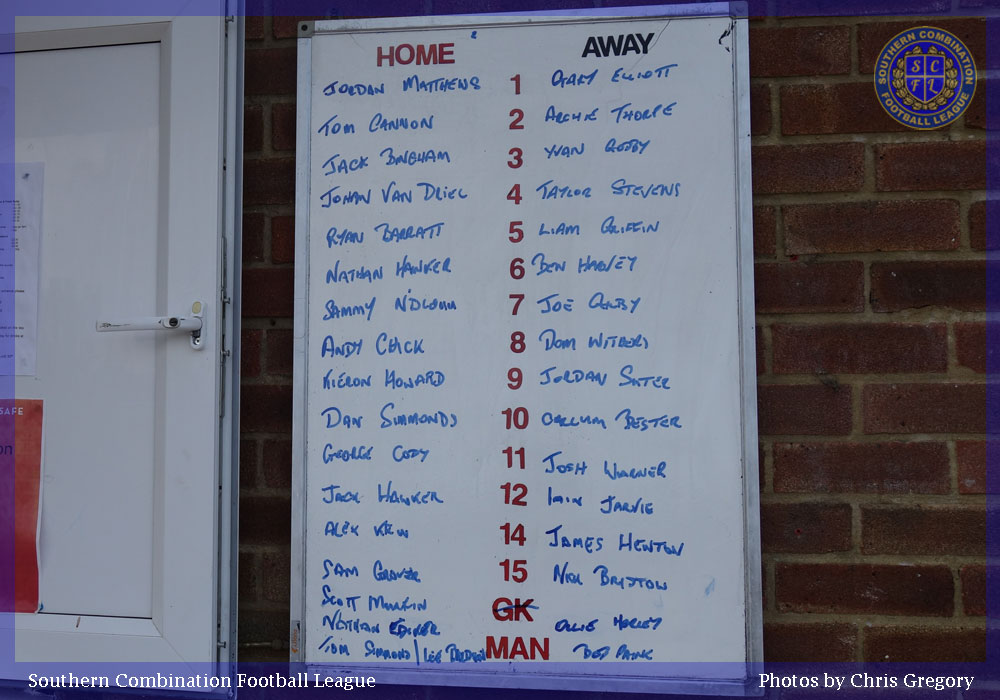 HOME AWAY
JORDAN MATTHENS 1 GARY ELLIOTT
TOM CANNON 2 ARCHIE THORPE
JACK BINGHAM 3 YVAN
JOHAN VAN DRIEL 4 TAYLOR STEVENS
RYAN BARRATT 5 LIAM GRIFFIN
NATHAN HAWKER 6 BEN HARVEY
SAMMY N'DLOVU 7 JOE
ANDY CHICK 8 DOM WITHERS
KIERON HOWARD 9 JORDAN SUTER
DAN SIMMONDS 10 CALLUM BESTER
GEORGE CODY 11 JOSH WARNER
JACK HAWKER 12 IAIN JARVIS
ALEX KEW 14 JAMES HENTON
SAM 15 NICK BRISTOW
SCOTT GK
NATHAN OLLIE
TOM SIMMONDS / LEE MAN
SAFE
SOUTHERN COMBINATION
S C
F L
FOOTBALL LEAGUE
Southern Combination Football League
Photos by Chris Gregory